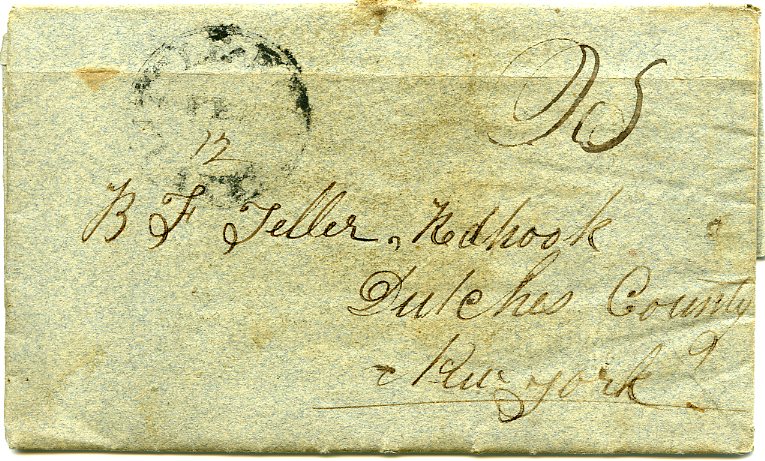 25
FE
12
B F Teller, Redhook
Dutches County
New york